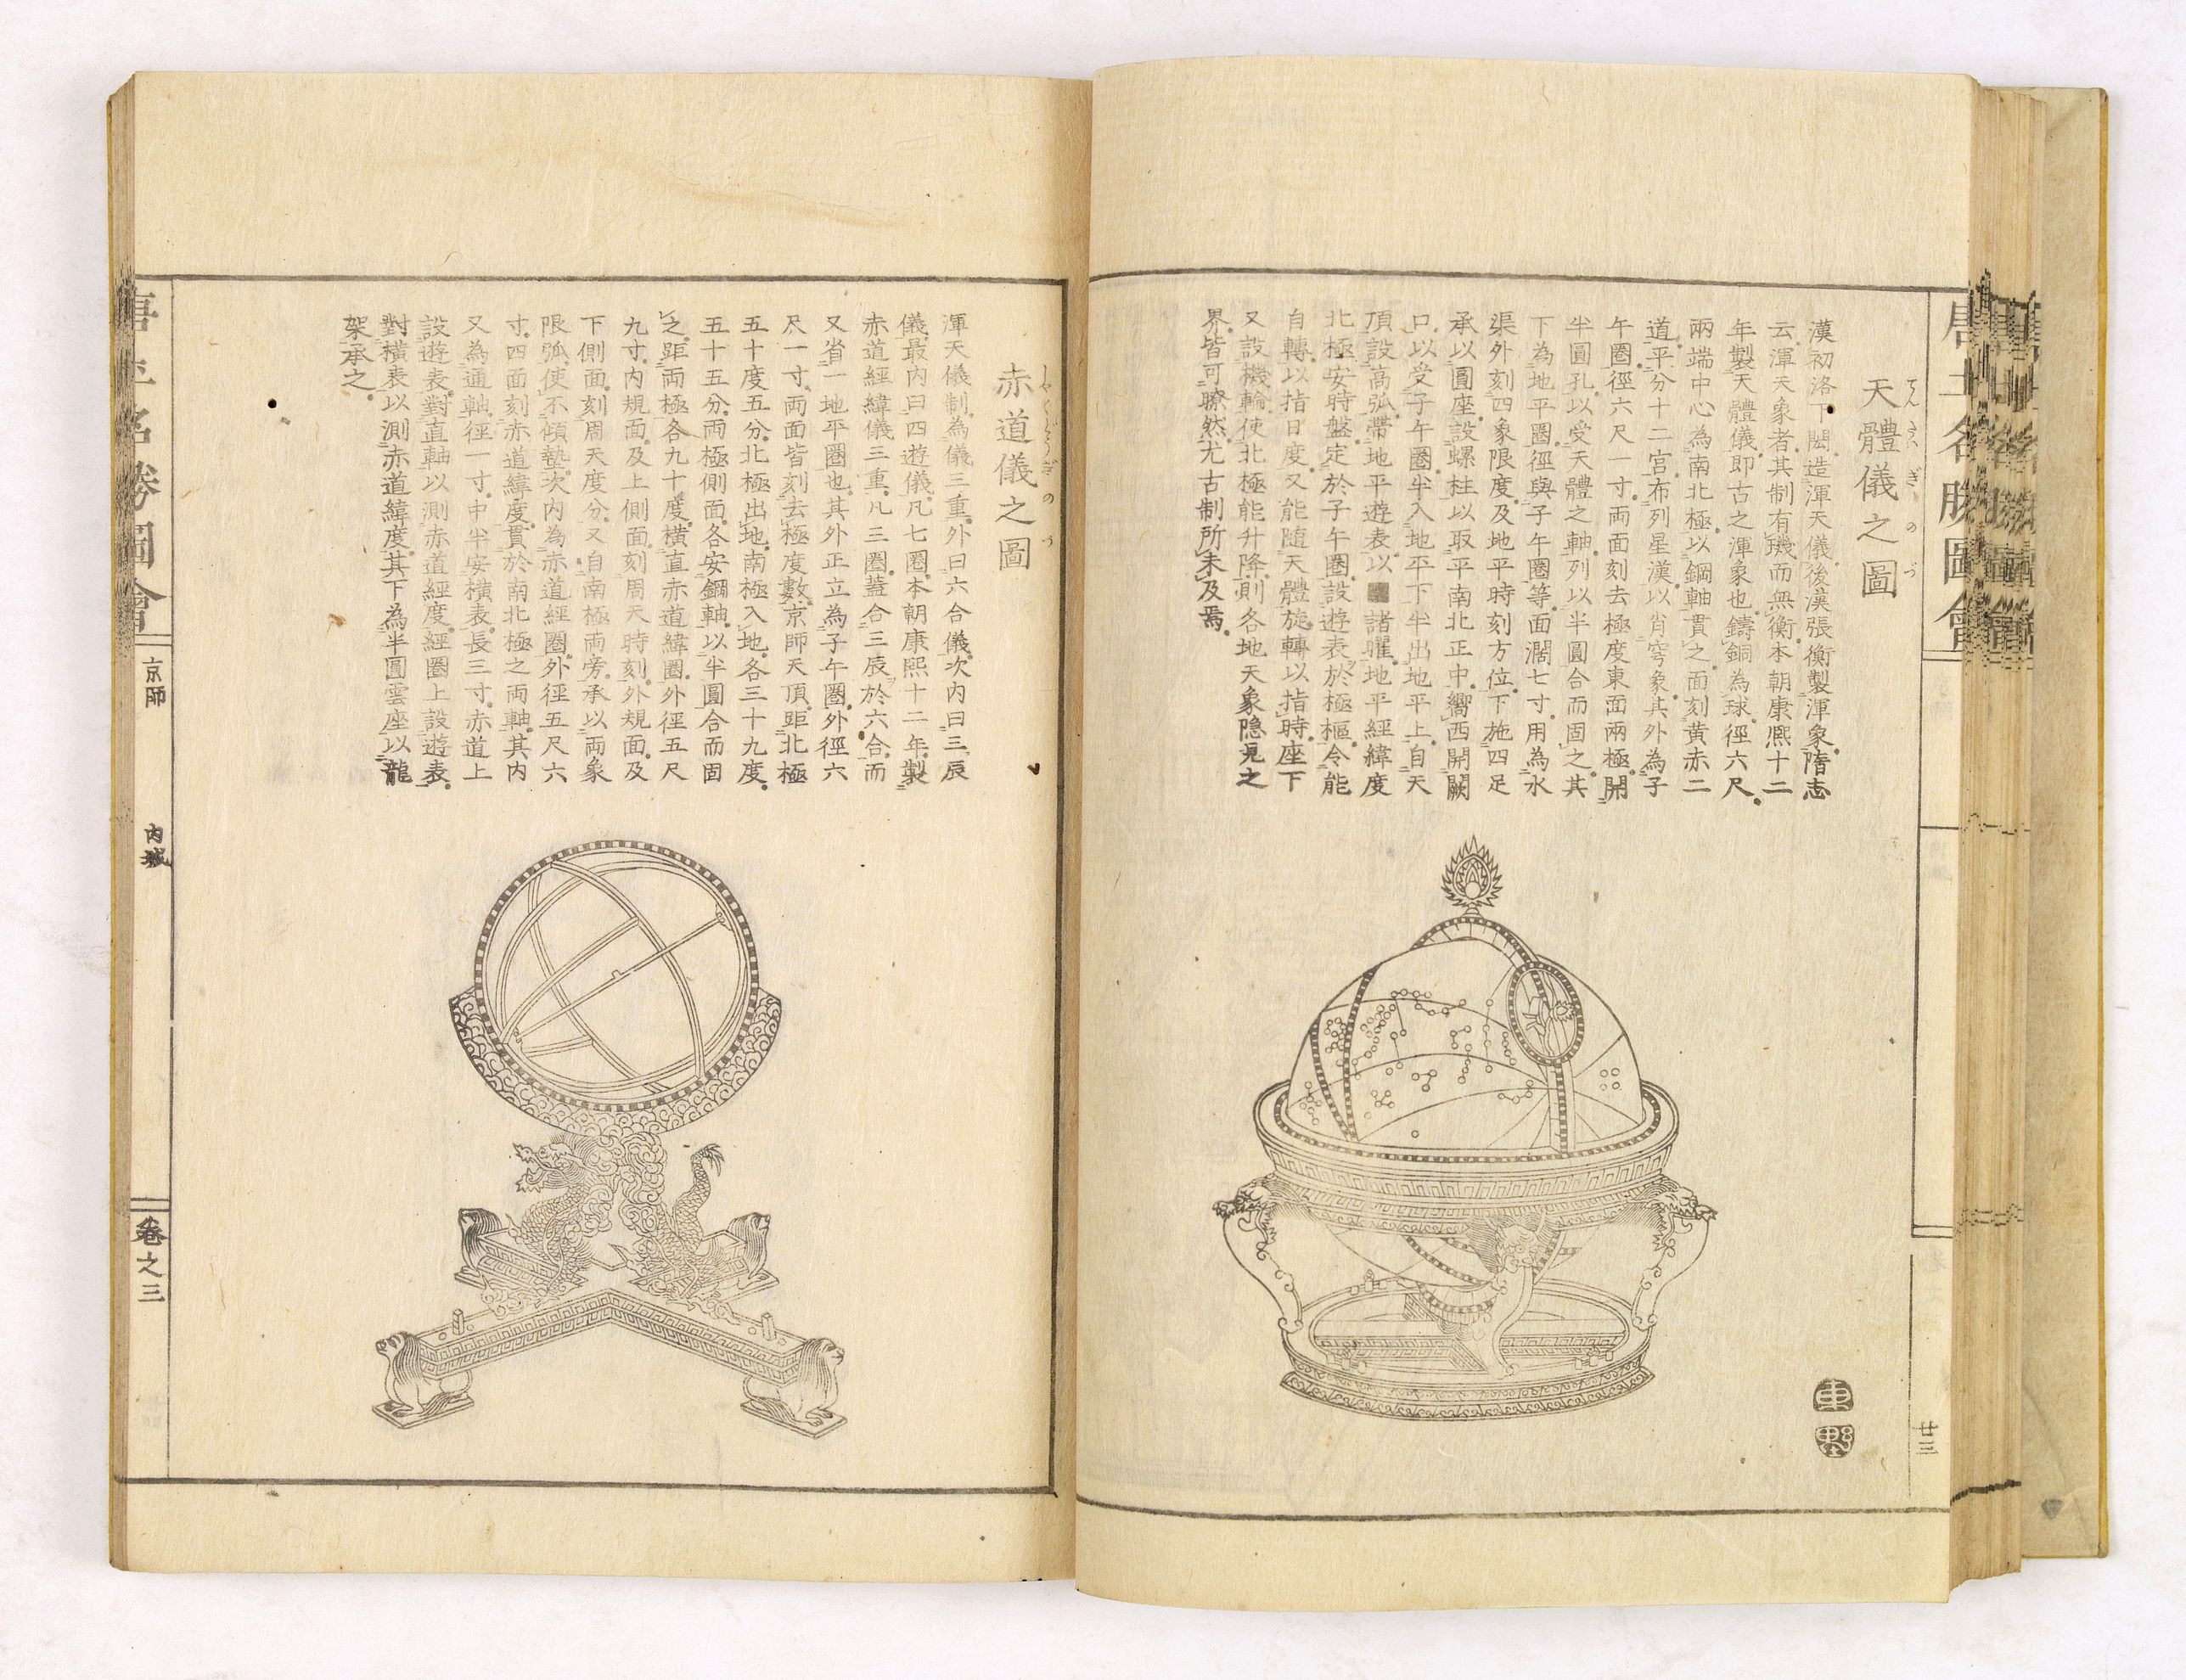 唐土名勝圖會
廿三
天體儀之圖
てんたいぎのづ
漢初洛下閎造渾天儀後漢張衡製渾象隋志
云渾天象者其制有璣而無衡本朝康熙十二
年製天體儀即古之渾象也鑄銅為球徑六尺
兩端中心為南北極以鋼軸貫之面刻黃赤二
道平分十二宮布列星漢以肖穹象其外為子
午圈徑六尺一寸兩面刻去極度東面兩極開
半圓孔以受天體之軸列以半圓合而固之其
下為地平圈徑與子午圈等面濶七寸用為水
渠外刻四象限度及地平時刻方位下施四足
承以圓座設螺柱以取平南北正中嚮西開闕
口以受子午圈半入地平下半出地平上自天
頂設高弧帶地平遊表以■諸曜地平經緯度
北極安時盤定於子午圈設遊表於極樞令能
自轉以指日度又能隨天體旋轉以指時座下
又設機輪使北極能升降則各地天象隠見之
界皆可瞭然尤古制所未及焉
赤道儀之圖
しやくどうぎのづ
渾天儀制為儀三重外曰六合儀次內曰三辰
儀最內曰四遊儀凡七圈本朝康熙十二年製
赤道經緯儀三重凡三圈蓋合三辰於六合而
又省一地平圈也其外正立為子午圈外徑六
尺一寸兩面皆刻去極度數京師天頂距北極
五十度五分北極出地南極入地各三十九度
五十五分兩極側面各安鋼軸以半圓合而固
之距兩極各九十度橫直赤道緯圈外徑五尺
九寸內規面及上側面刻周天時刻外規面及
下側面刻周天度分又自南極兩旁承以兩象
限弧使不傾墊次內為赤道經圈外徑五尺六
寸四面刻赤道緯度貫於南北極之兩軸其內
又為通軸徑一寸中半安橫表長三寸赤道上
設遊表對直軸以測赤道經度經圈上設遊表
對橫表以測赤道緯度其下為半圓雲座以龍
架承之
唐土名勝圖會
京師
內城
卷之三